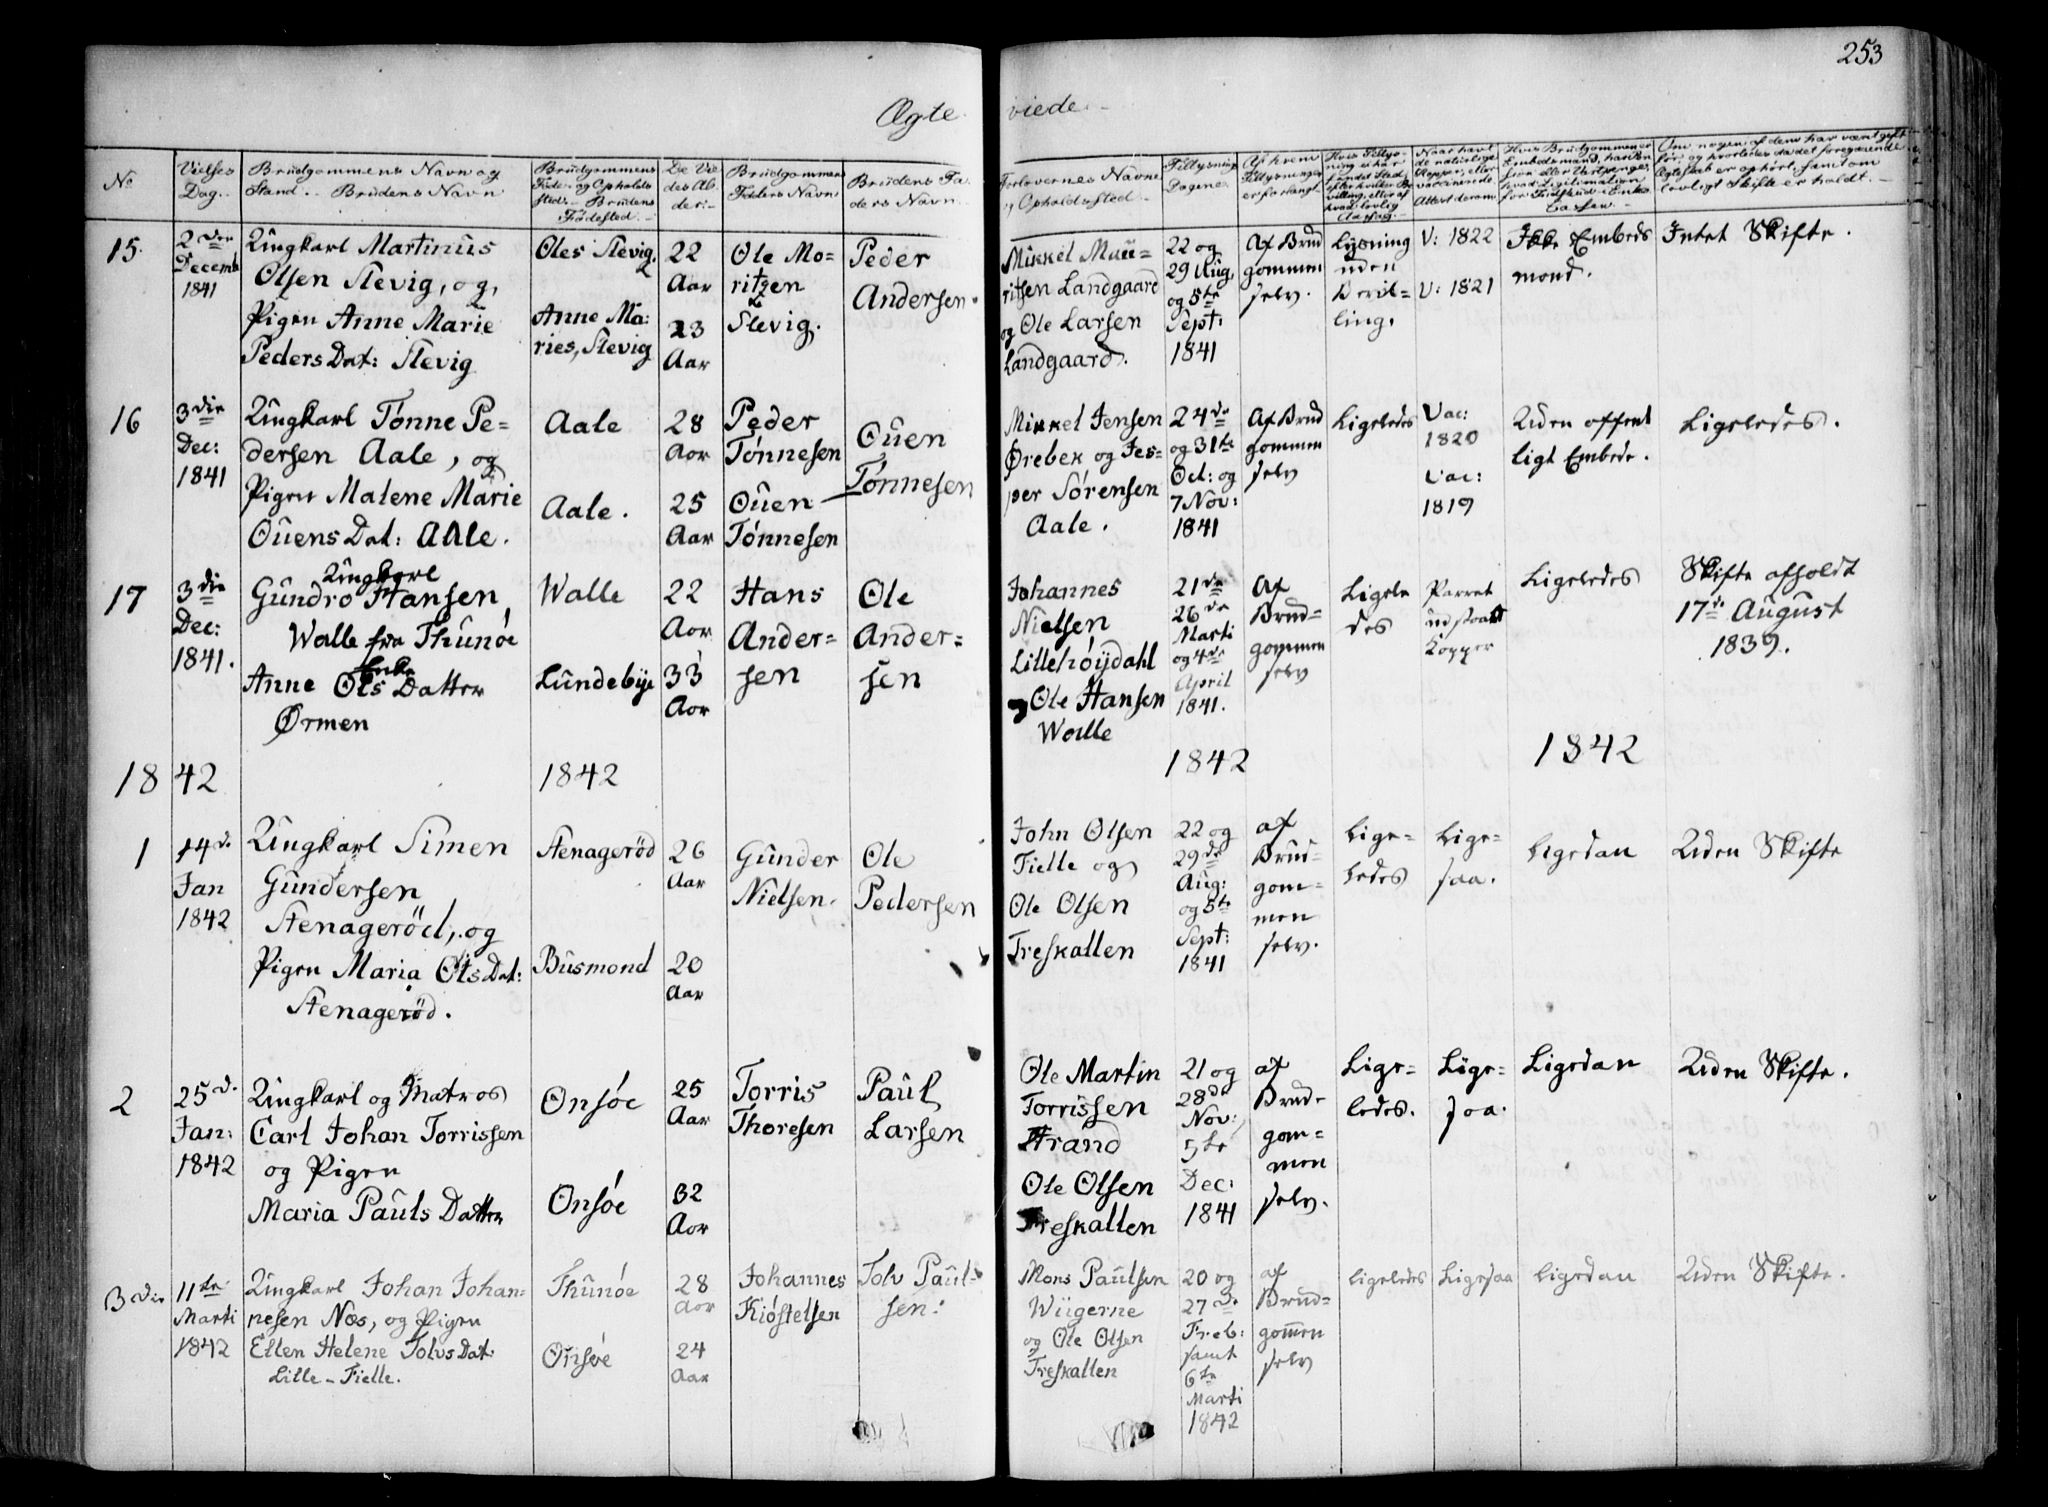 253
Ægte viede.
No
Vielses Dag.
Brudgommens Navn og Stand. Brudens Navn
Brudgommens Føde- og Opholds Sted. Brudens Fødested.
De Viedes Alder:
Brudgommens Faders Navn
Brudens Faders Navn
Forlovernes Navne og Opholdssted.
Tillysnings Dagene.
Af hvem Tillysningen er forlangt
Om nogen af dem har vært gift før, og hvorledes da det foregaaende Ægteskab er ophørt, samt om lovligt Skifte er holdt.
15.
2den
Decemb
1841
Ungkarl Martinus
Olsen Slevig, og,
Pigen Anne Marie
PedersDat: Slevig
Oles Slevig,
Anne Ma:
ries, Slevig
22
Aar
23
Aar
Ole Mo=
ritzen
Slevig.
Peder
Andersen.
Mikkel Mau=
ritsen Landgaard
og Ole Larsen
Landgaard.
22 og
29 Aug,
og 5te
Sept:
1841
Af Brud
gommen
selv.
Lysning
uden
Bevil=
ling.
V: 1822
V: 1821
Ikke Embeds
mand.
Intet Skifte.
16
3die
Dec:
1841
Ungkarl Tønne Pe=
dersen Aale, og
Pigen Malene Marie
OuensDat: Aale.
Aale
Aale.
28
Aar
25
Aar
Peder
Tønnesen
Ouen
Tønnesen
Ouen
Tønnesen
Mikkel Jensen
Ørebek og Jes=
per Sørensen
Aale.
24de
og 31te
Oct: og
7 Nov:
1841
Af Brud
gommen
selv
Ligeledes
Vac:
1820
Vac:
1819
Uden offent
ligt Embede.
Ligeledes.
17
3die
Dec:
1841.
Ungkarl
Gundro Hansen
Walle fra Thunøe
Enke
Anne Ols Datter
Ørmen
Walle
Lundebye
22
Aar
33
Aar
Hans
Ander=
sen
Ole
Ander=
sen
Johannes
Nielsen
Lillehöydahl
og Ole Hansen
Walle
21de
26de
Marti
og 4de
April
1841.
Af
Brud=
gommen
selv
Ligele
des
Parret
udstaaet
Kopper
Ligeledes
Skifte afholdt
17de August
1839.
1842
1842
1842
1842
1
14d.
Jan
1842
Ungkarl Simen
Gundersen
Stenagerød, og
Pigen Maria OlsDat:
Stenagerød.
Stenagerød
Busmond
26
Aar
20
Aar
Gunder
Nielsen.
Ole
Pedersen
John Olsen
Fielle og
Ole Olsen
Treskallen
22 og
29de
Aug:
og 5te
Sept:
1841
af
Brud=
gom=
men
selv.
Lige=
ledes
Lige=
saa.
Ligedan
Uden Skifte
2
25d.
Jan:
1842
Ungkarl og Matros
Carl Johan Torrissen
og Pigen
Maria Pauls Datter
Onsøe
Onsøe
25
Aar
32
Aar
Torris
Thoresen
Paul
Larsen
Ole Martin
Torrissen
Strand
Ole Olsen
Treskallen
21 og
28de
Nov:
5te
Dec:
1841
af
Brud=
gom=
men
selv.
Lige=
ledes.
Lige=
saa.
Ligedan
Uden Skifte.
3die
11te
Marti
1842
Ungkarl Johan Johan=
nesen Næs, og Pigen
Ellen Helene TolvsDat:
Lille-Fielle.
Thunøe
Onsøe
28
Aar
24
Aar
Johannes
Kiøstelsen
Tolv Paul=
sen:
Mons Paulsen
Wügerne
og Ole Olsen
Treskallen
20 og
27de
Freb:
samt
6te
Marti
1842
af
Brud=
gommen
selv
ligeledes
Ligesaa
ligedan
Uden Skifte.